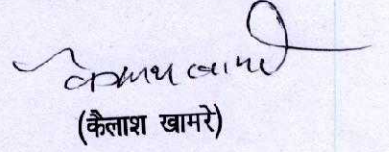 कैलाश खामरे
(कैलाश खामरे)